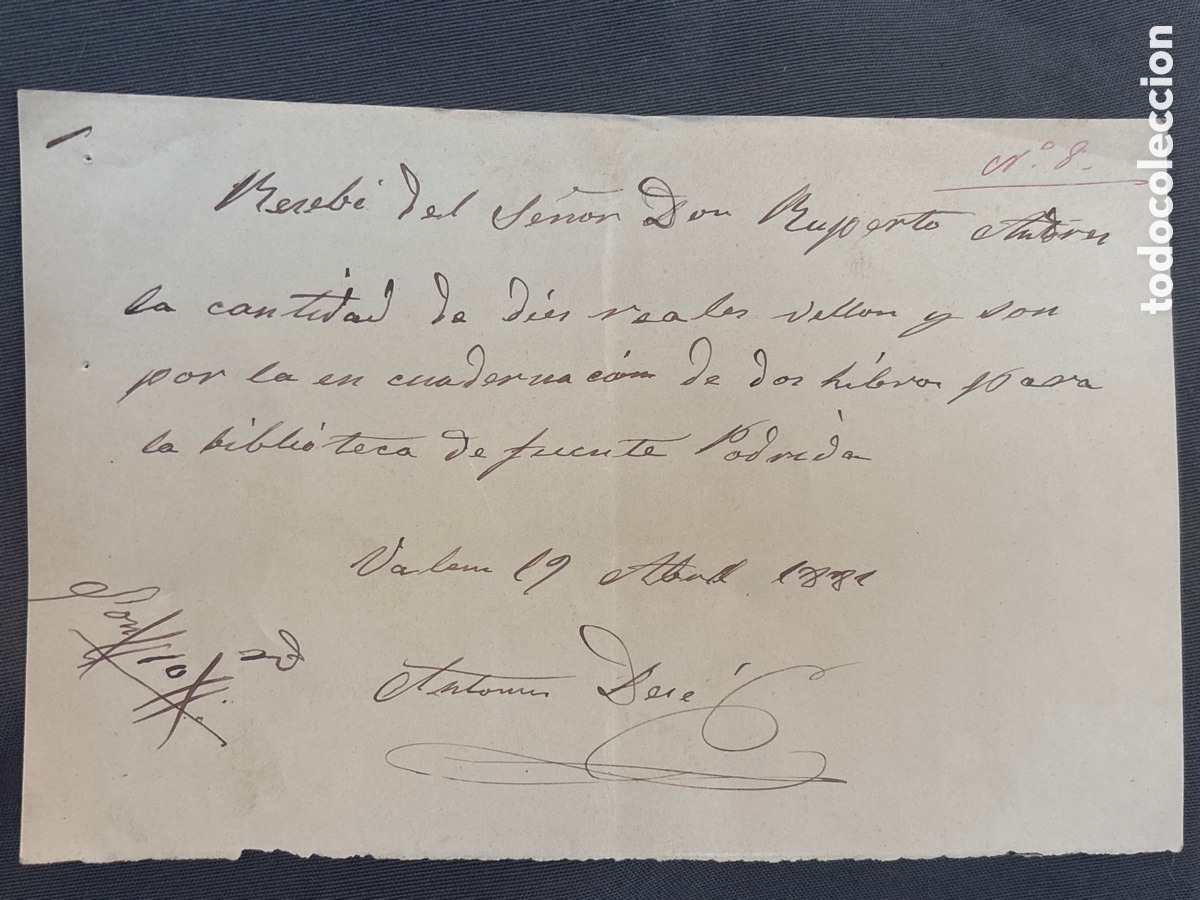 Nº 8.
Resebí del Señor Don Ruperto Andres
la cantidad de diés reales vellon y son
por la en cuadernación de dos libros para
la biblióteca de fuente Podrida
Valem 19 Abril 1881
Son # 10 # rd
Antonio
todocoleccion